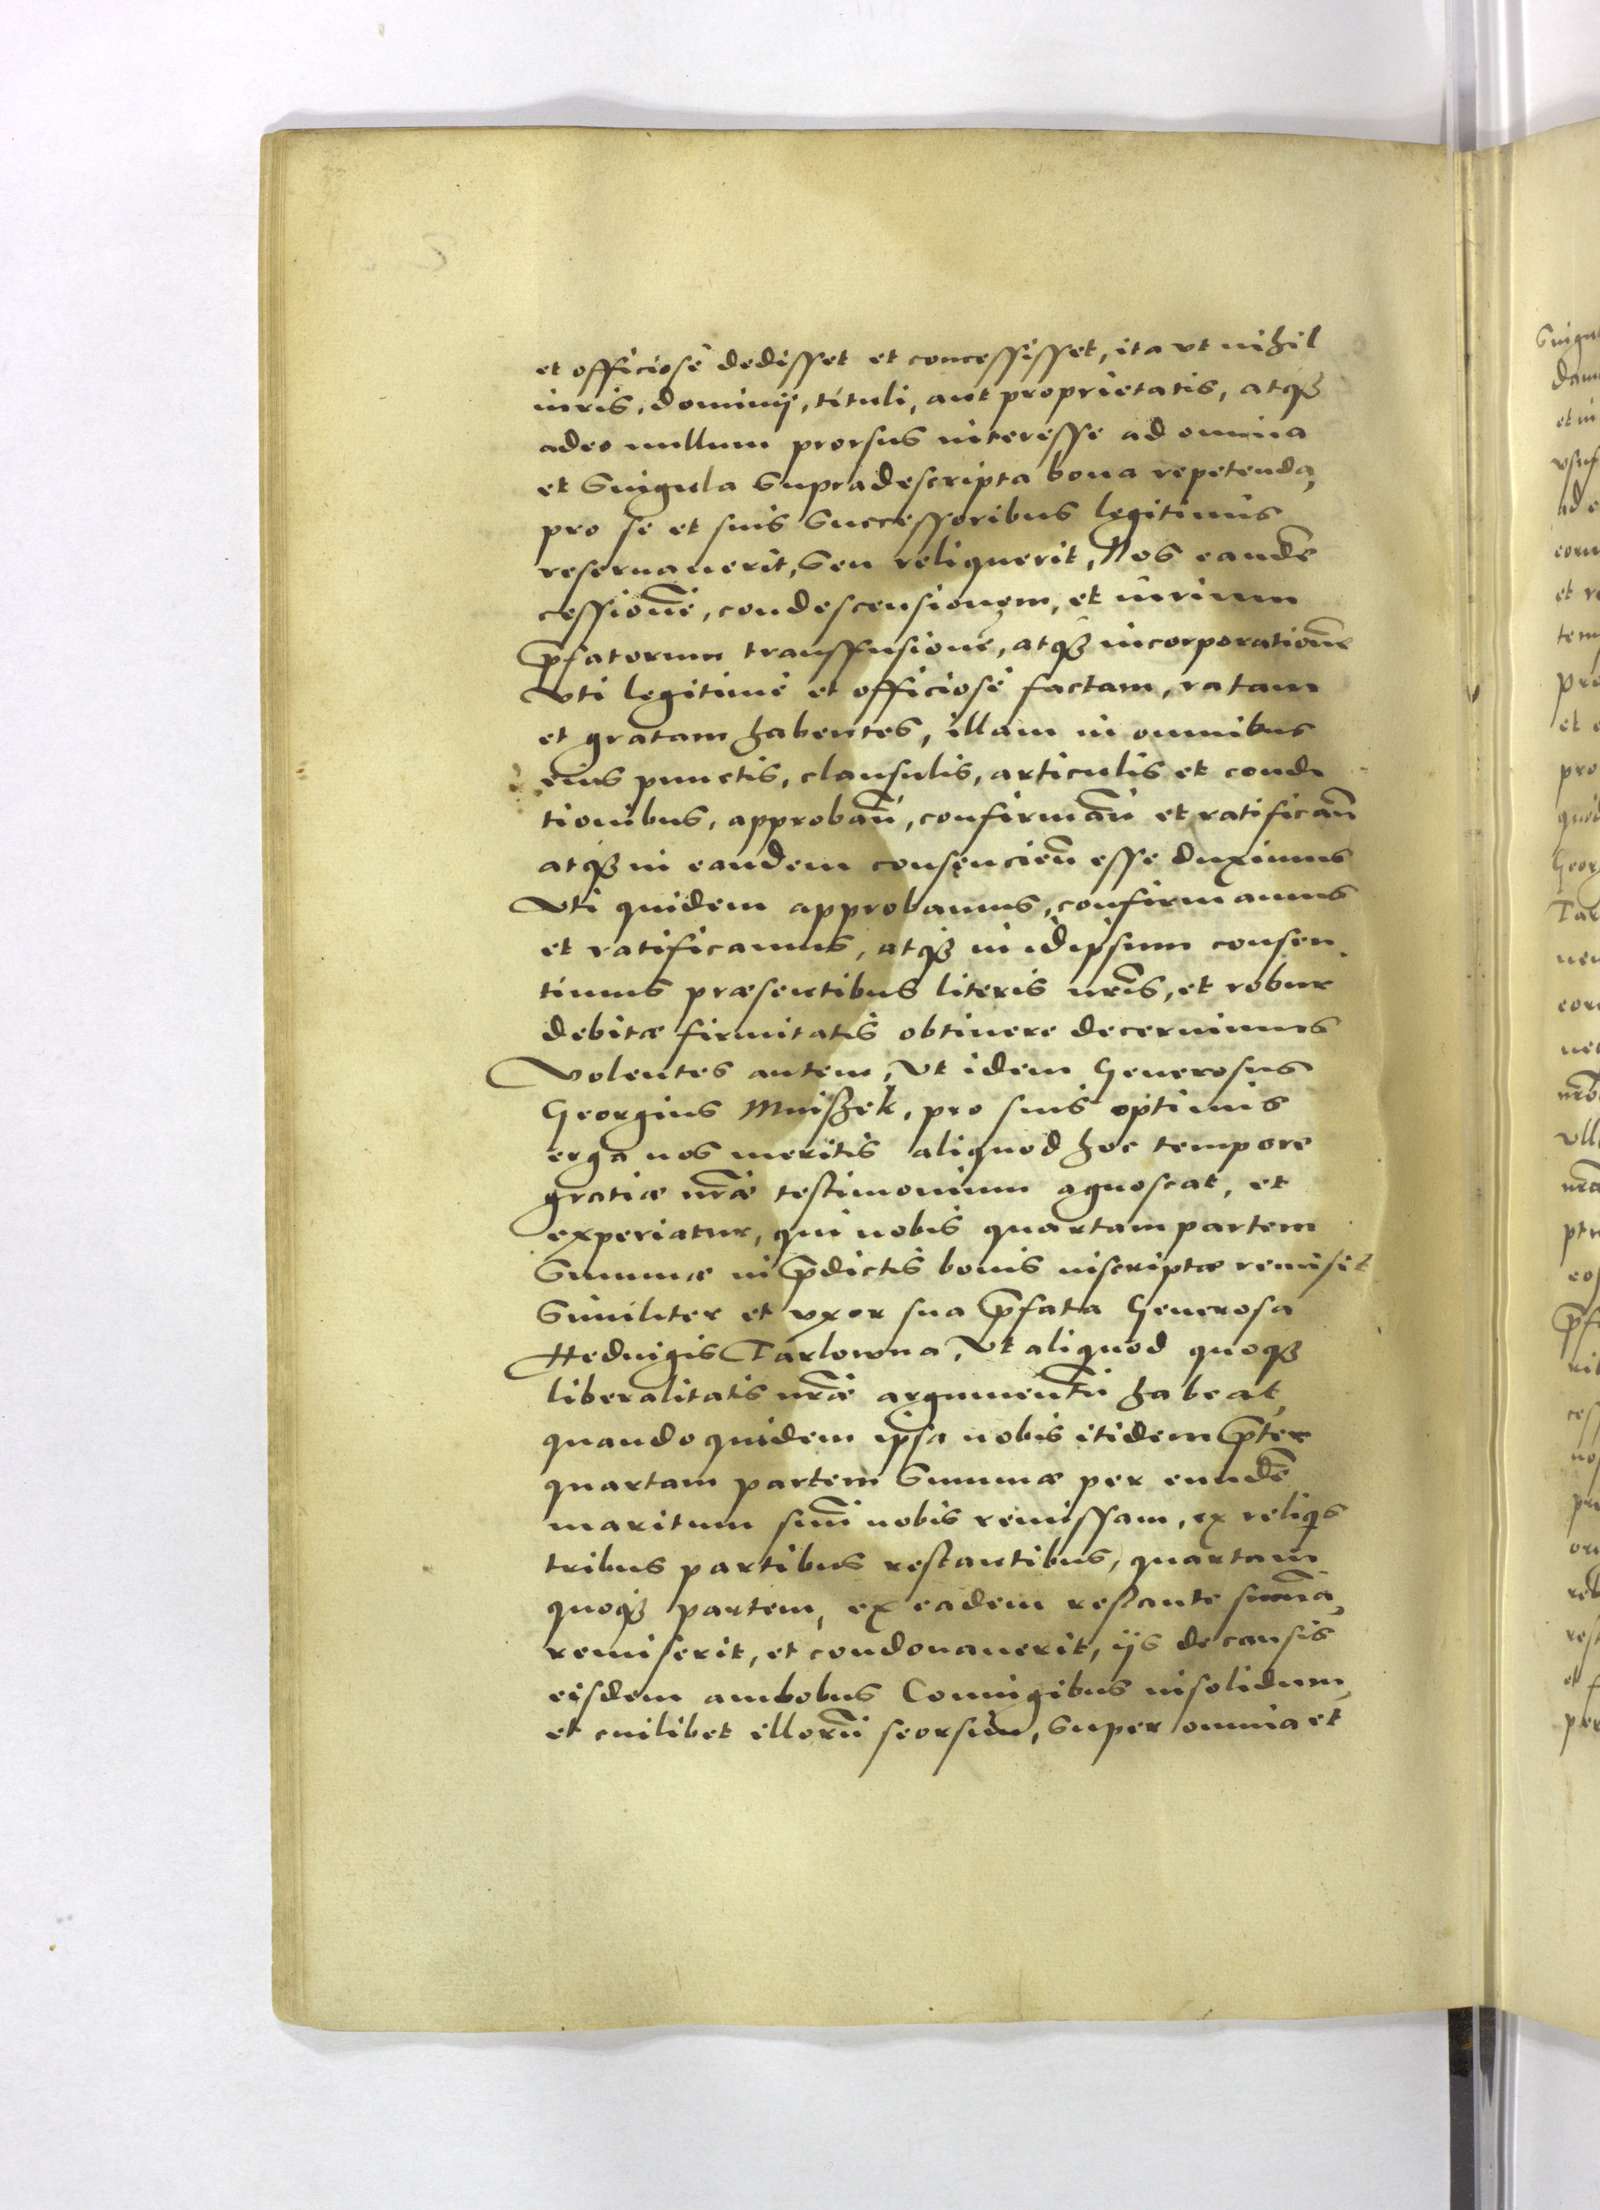 et officiosè dedisset et concessisset, ita vt nihil
iuris, dominij, tituli, aut proprietatis, atqȝ
adeo nullum prorsus interesse ad omnia
et Singula Supradescripta bona repetenda,
pro se et suis Successoribus legitimis
reseruauerit, Seu reliquerit, Nos eandē
cessionē, condescensionem, et iurium
p̄fatorum transffusionē, atqȝ incorporationē
Vti legitimè et officiosè factam, ratam
et gratam habentes, illam in omnibus
eius punctis, clausulis, articulis et condi
tionibus, approban̄, confirman̄ et ratifican̄
atqȝ in eandem consencien̄ esse duximus
Vti quidem approbamus, confirmamus
et ratificamus, atqȝ in idipsum consen
timus præsentibus literis nr̄is, et robur
debitæ firmitatis obtinere decernimus
Volentes autem, Vt idem Generosus
Georgius Mniszek, pro suis optimis
erga nos meritis aliquod hoc tempore
gratiæ nr̄æ testimonium agnoscat, et
experiatur, qui nobis quartam partem
Summæ in p̄dictis bonis inscriptæ remisit
Similiter et vxor sua p̄fata Generosa
Heduigis Tarlowna, Vt aliquod quoqȝ
liberalitatis nr̄æ argumentū habeat,
quando quidem ipsa nobis itidem p̄ter
quartam partem Summæ per eundē
maritum suū nobis remissam, ex reliq̄s
tribus partibus restantibus, quartam
quoqȝ partem, ex eadem restante sum̄a,
remiserit, et condonauerit, ijs de causis
eisdem ambobus Coniugibus insolidum,
et cuilibet illorū seorsim, Super omnia et